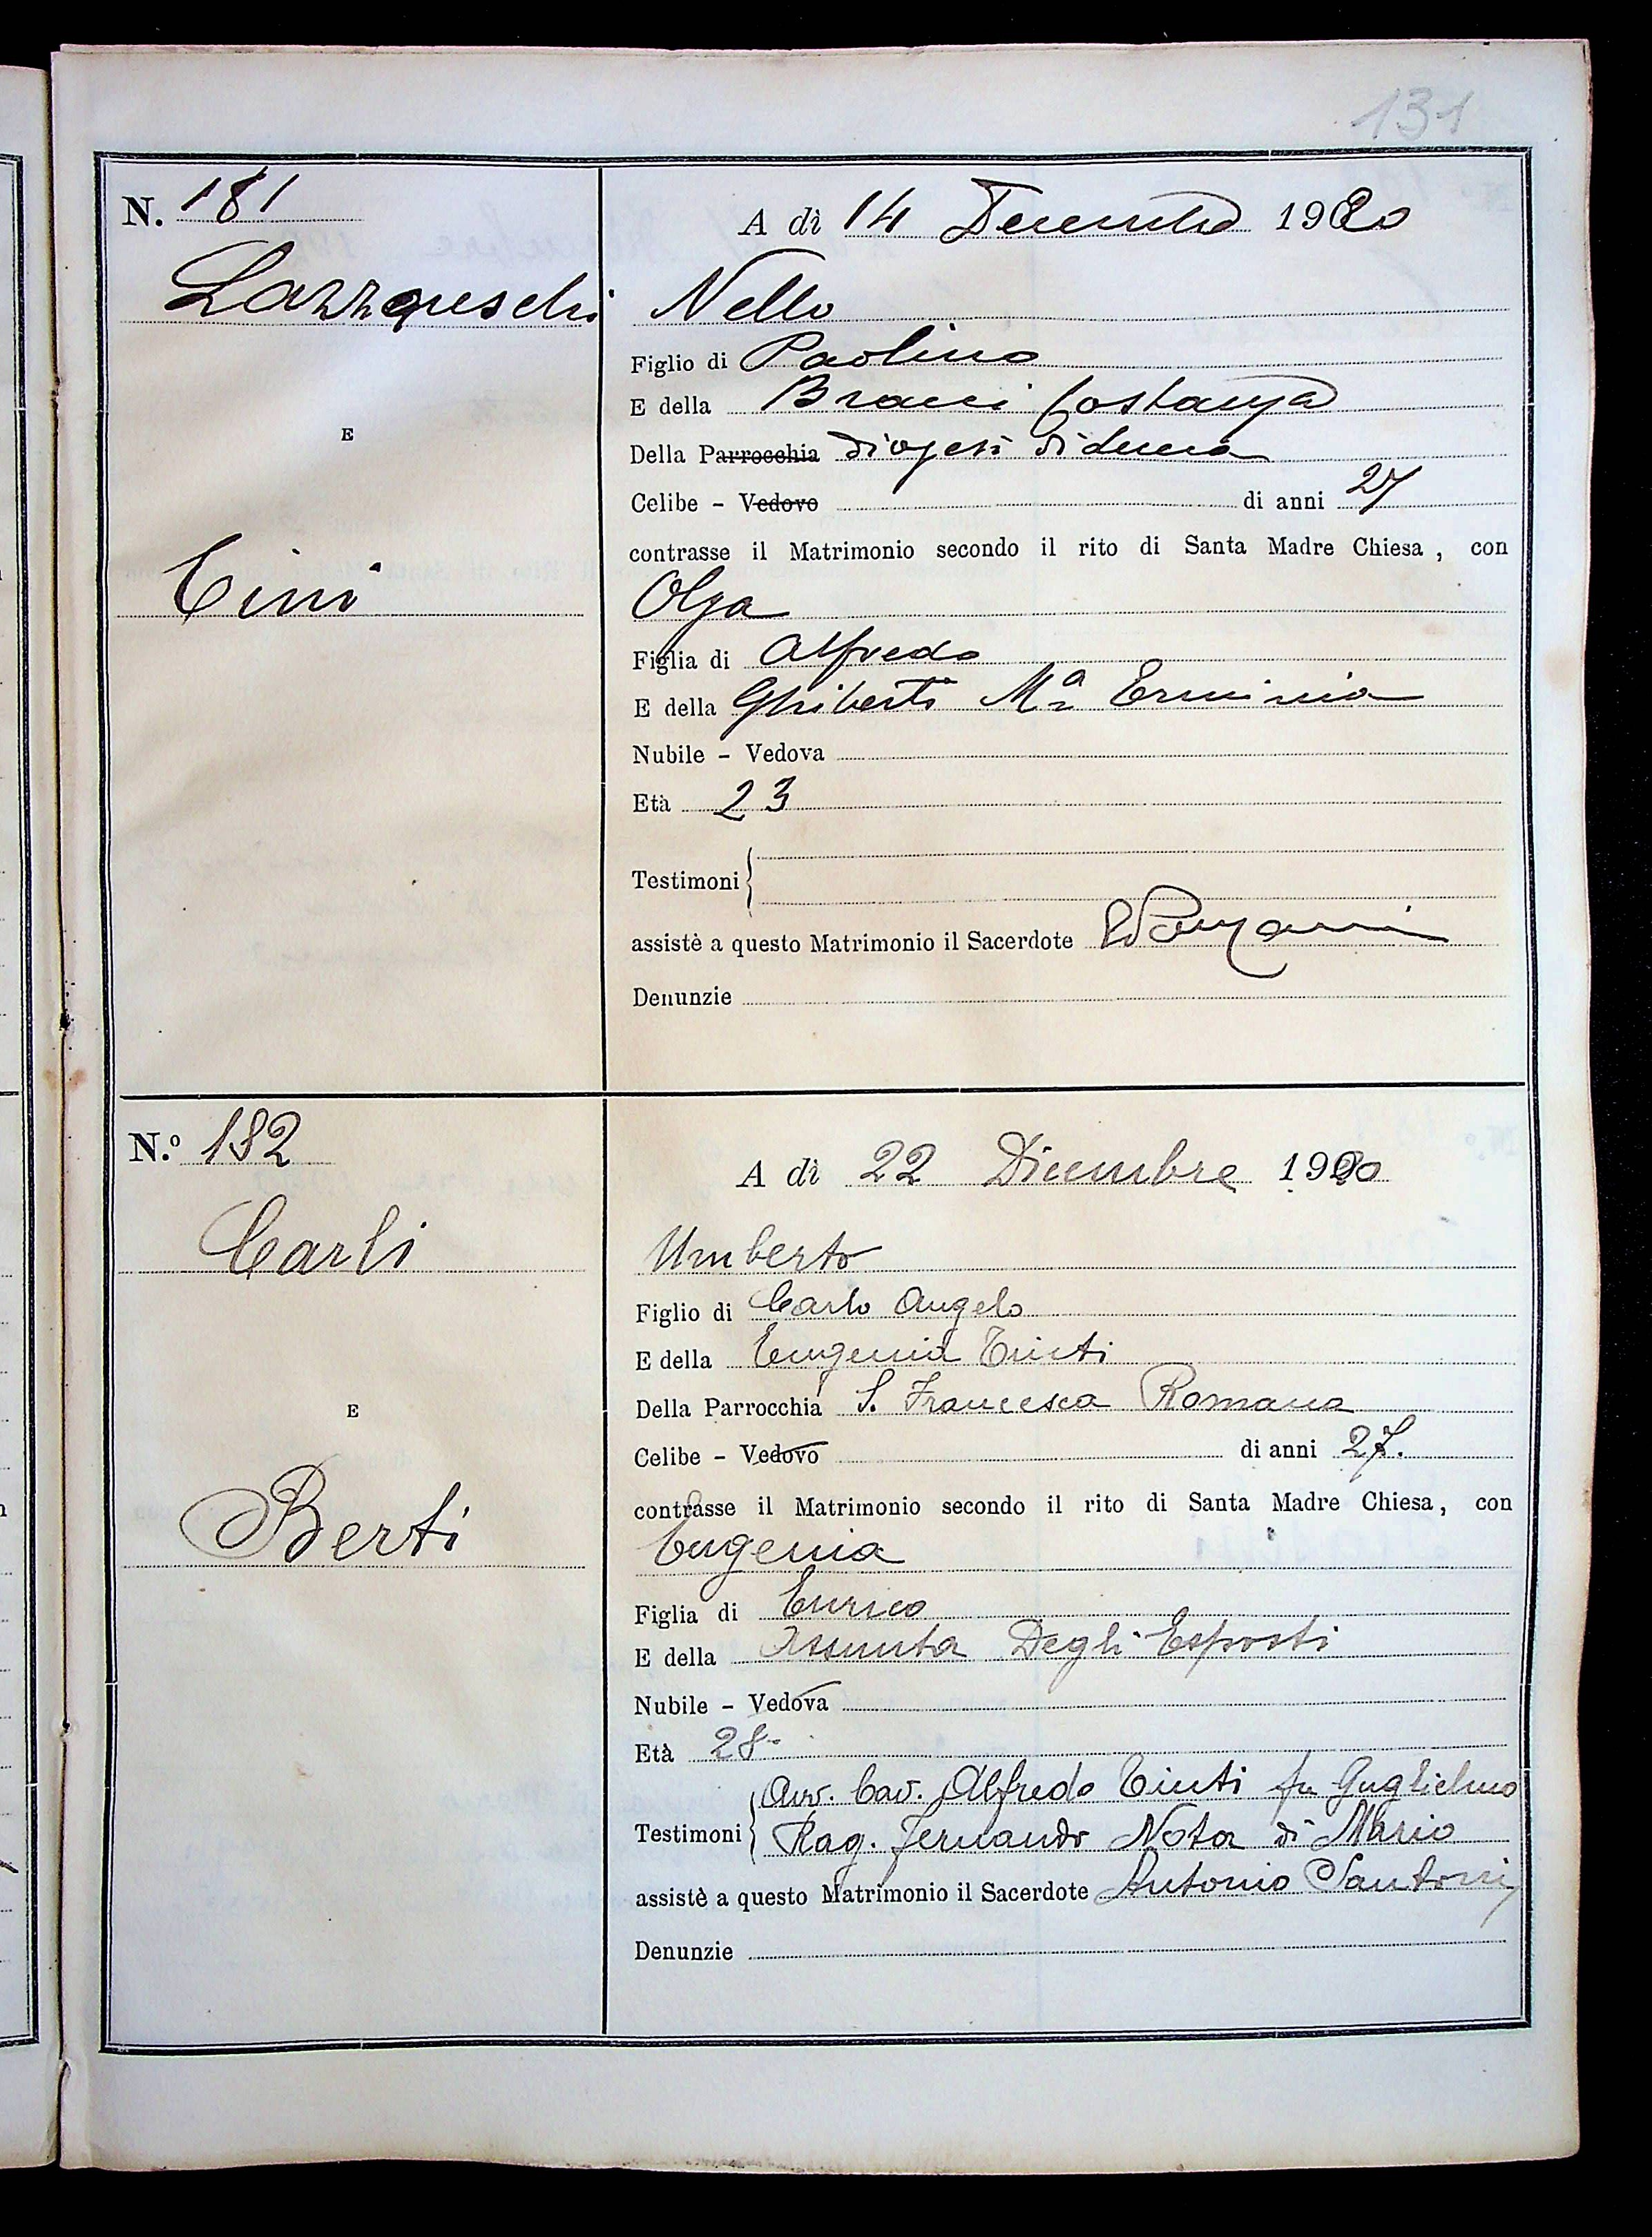 131
N. 181
A dì 14 Decembre 1920
Lazzareschi
Nello
Figlio di Paolino
E della Bracci Costanza
E
Della Parrocchia diogesi di Lucca
Celibe - Vedovo di anni 27
contrasse il Matrimonio secondo il rito di Santa Madre Chiesa, con
Cini
Olga
Figlia di Alfredo
E della Ghiberti Mª Erminia
Nubile - Vedova
Età 23
Testimoni
assistè a questo Matrimonio il Sacerdote
Denunzie
N.º 182
A dì 22 Dicembre 1920
Carli
Umberto
Figlio di Carlo Angelo
E della Eugenia Tinti
E
Della Parrocchia S. Francesca Romana
Celibe - Vedovo di anni 27.
contrasse il Matrimonio secondo il rito di Santa Madre Chiesa, con
Berti
Eugenia
Figlia di Enrico
E della Assunta Degli Esposti
Nubile - Vedova
Età 28
Avv. Cav. Alfredo Tinti fu Guglielmo
Testimoni
Rag. Fernando Nota di Mario
assistè a questo Matrimonio il Sacerdote Antonio Santoni
Denunzie